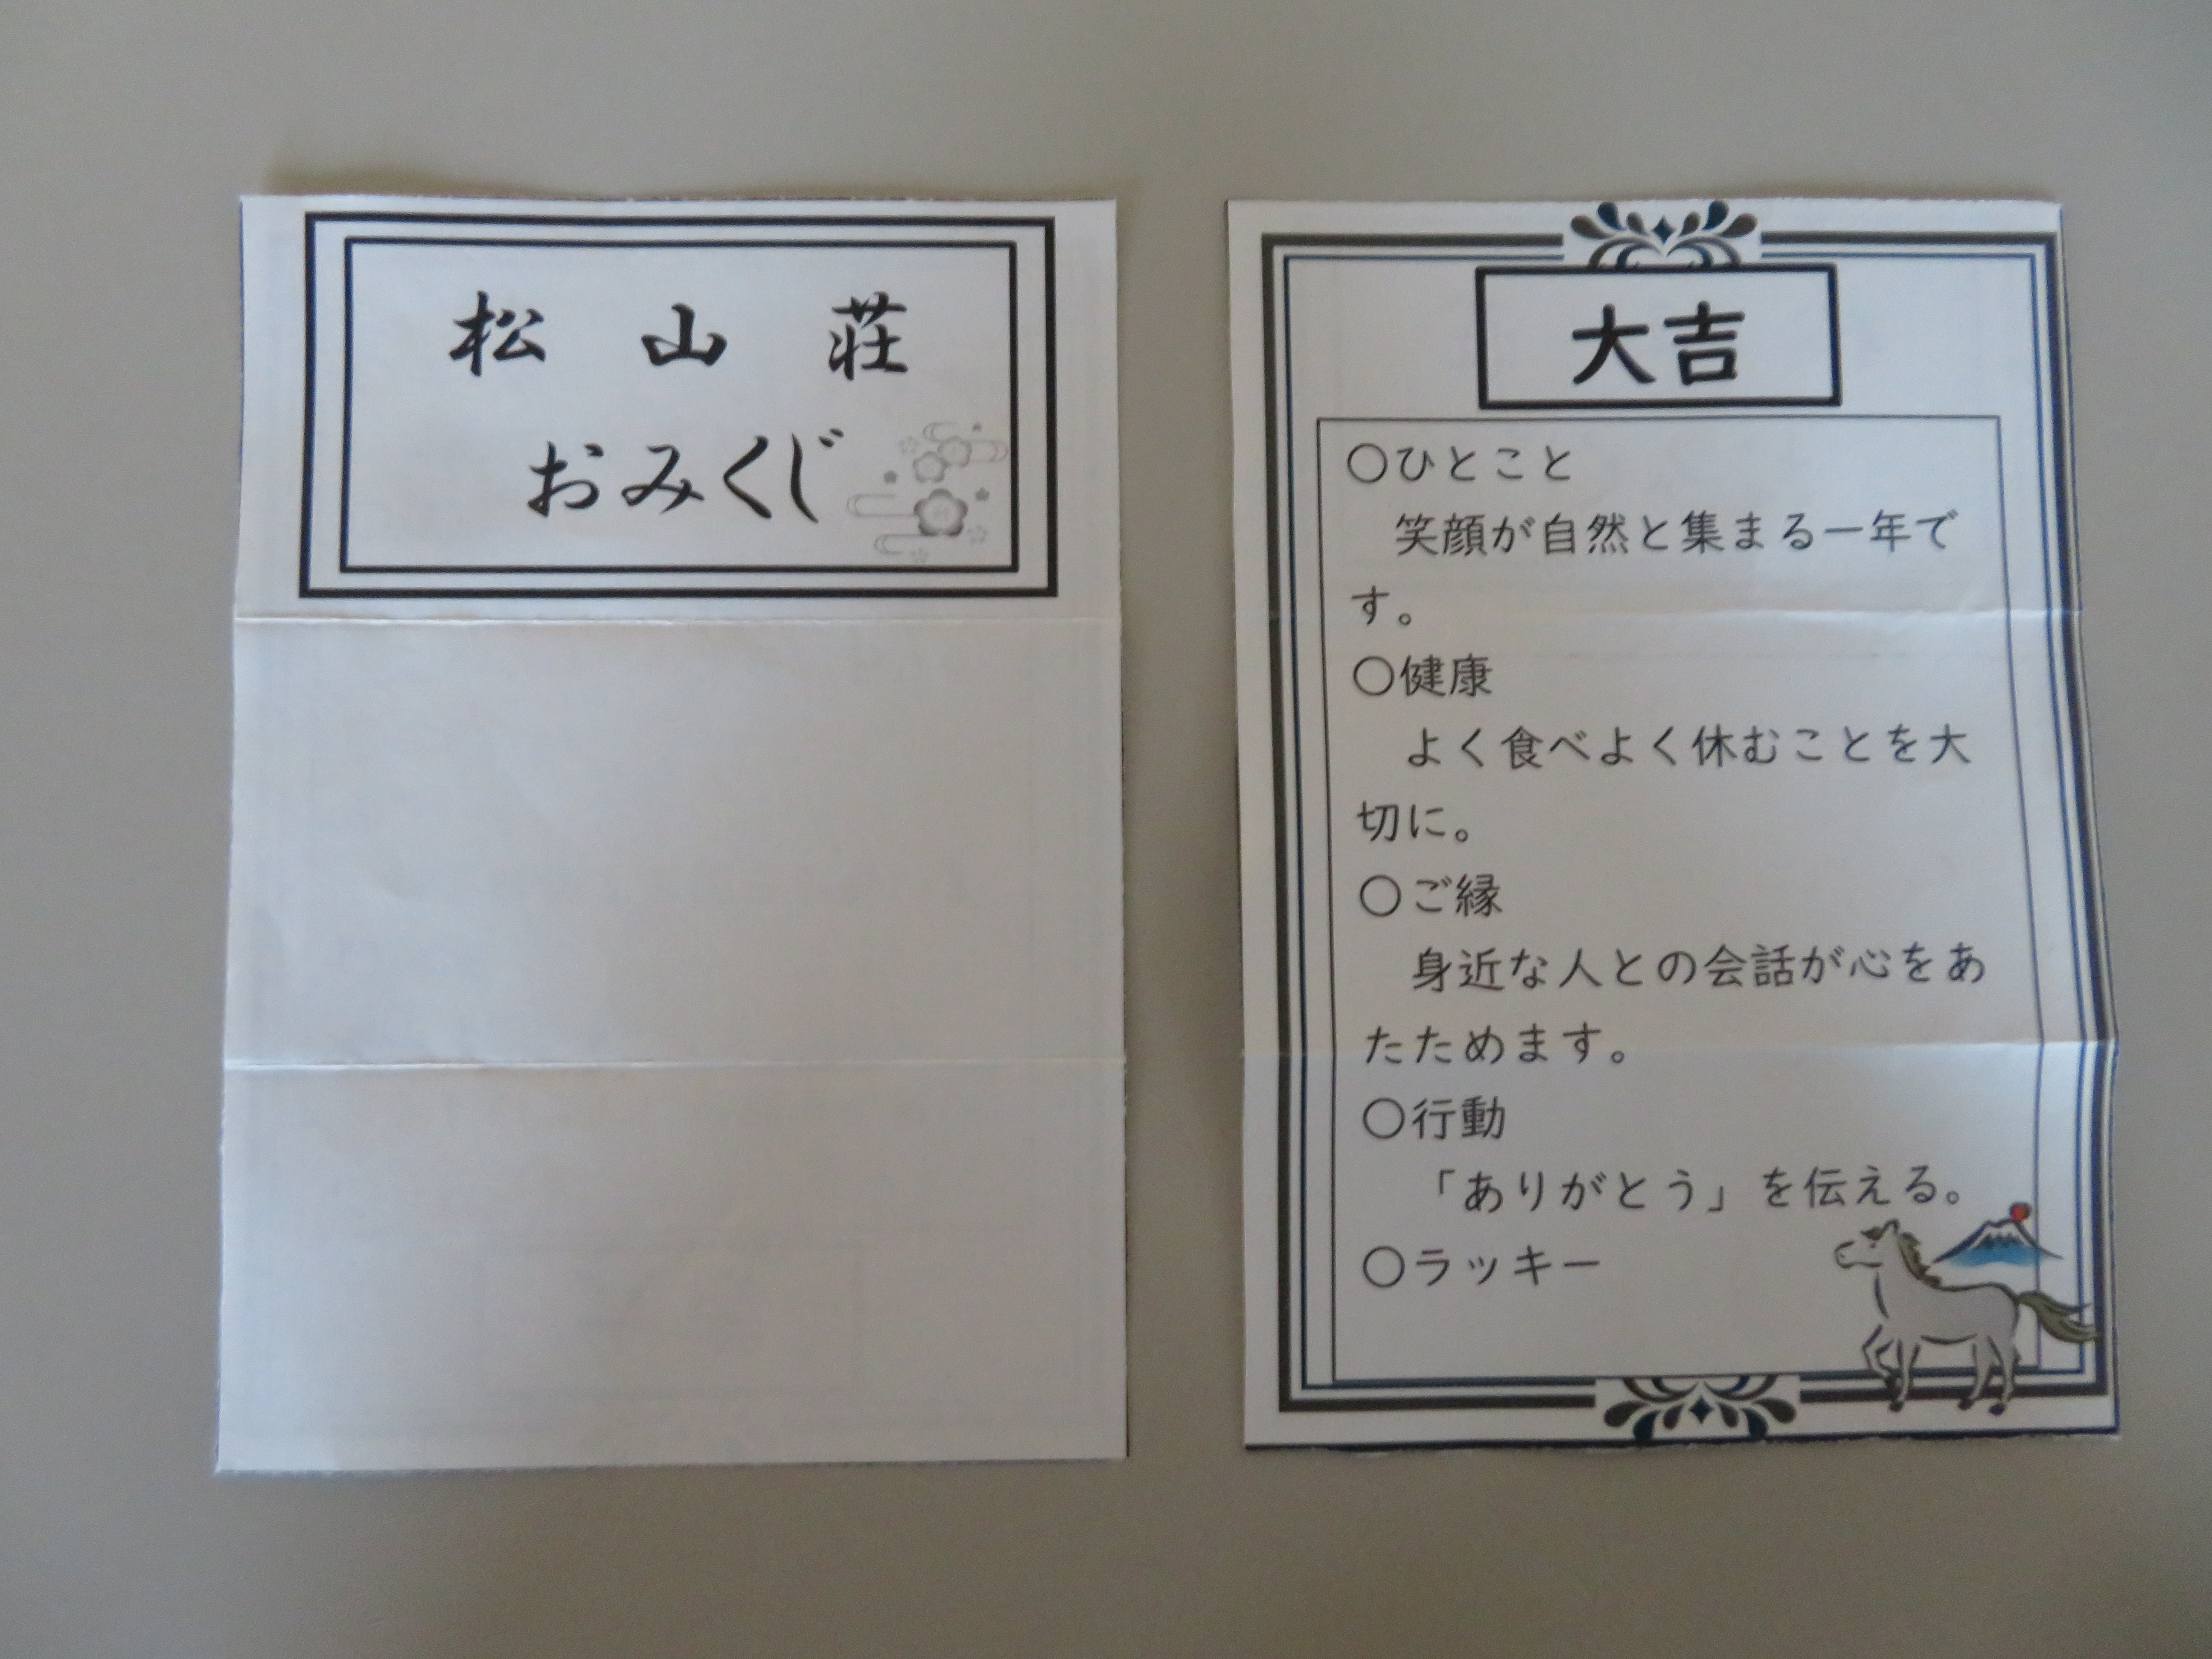 松山荘
おみくじ
大吉
○ひとこと
笑顔が自然と集まる一年で
す。
○健康
よく食べよく休むことを大
切に。
○ご縁
身近な人との会話が心をあ
たためます。
○行動
「ありがとう」を伝える。
○ラッキー